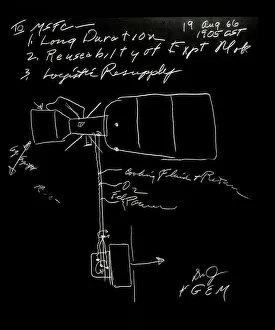 To MSFC
19 Aug 66
1905 CST
1. Long Duration
2. Reuseability of Expt Mod.
3. Logistic Resupply
Cooling Fluid + Return
O2
Power
GEM